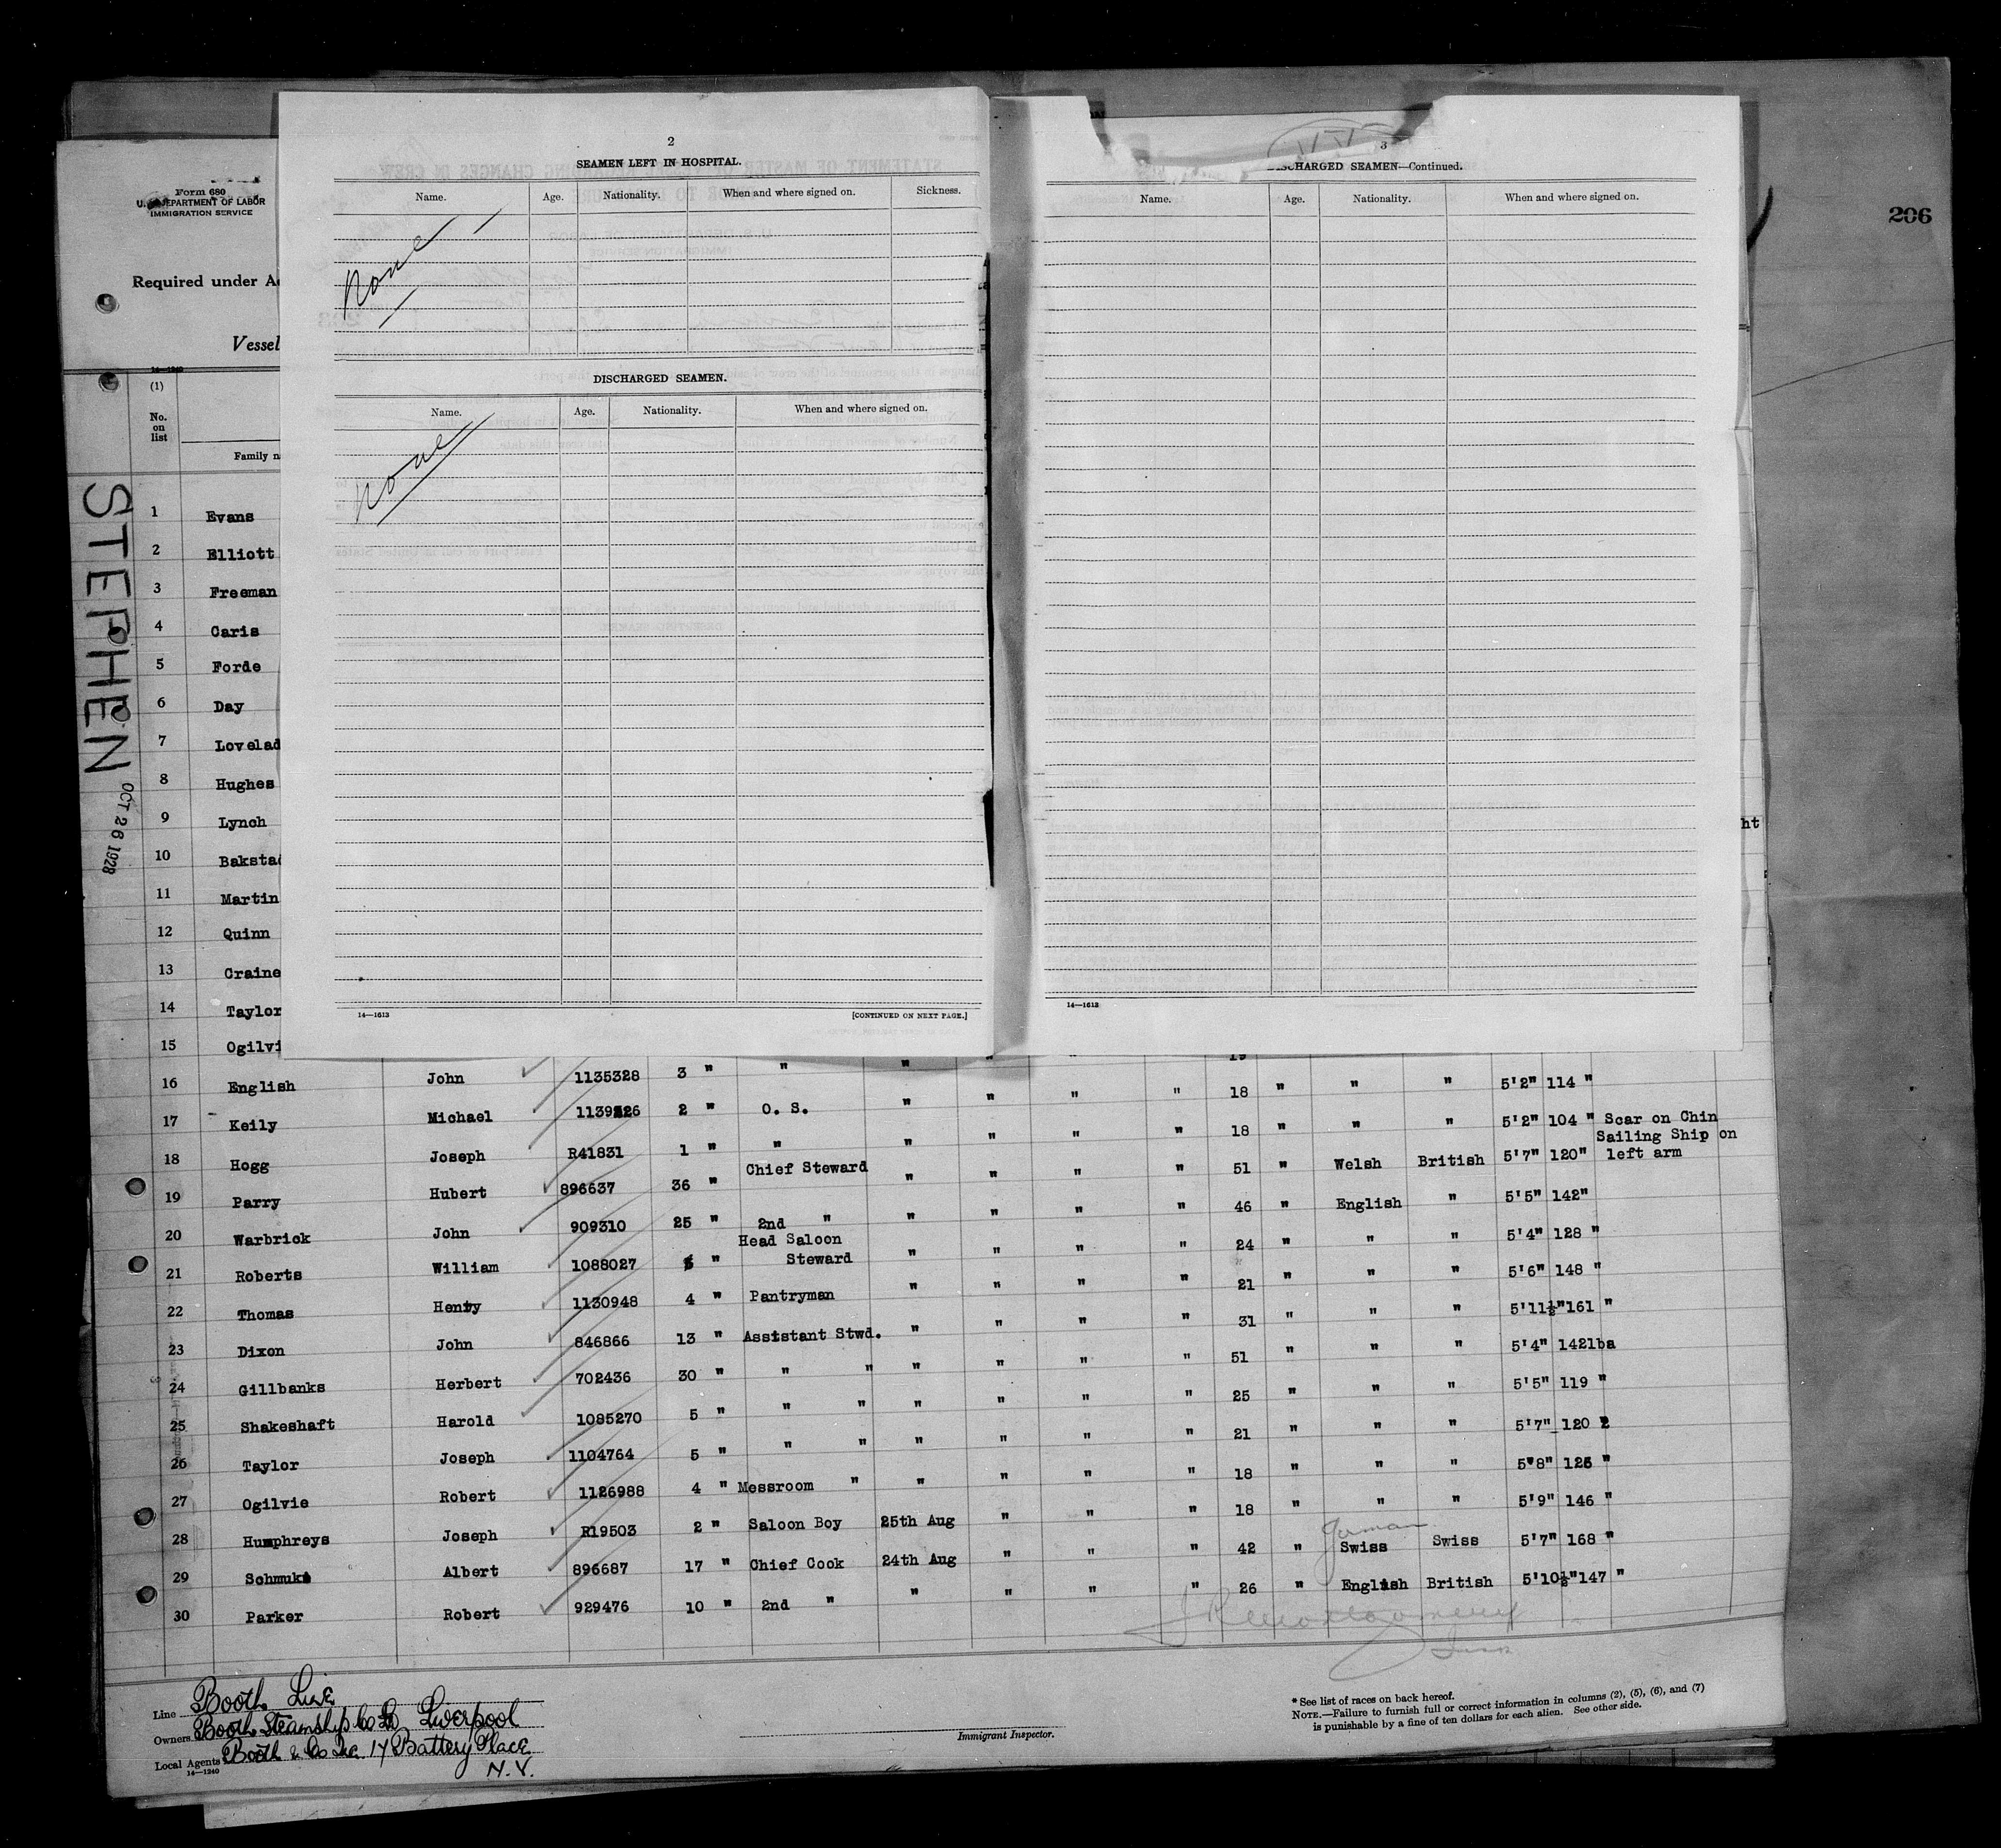 206
Form 680
U.S. DEPARTMENT OF LABOR
IMMIGRATION SERVICE
Required under A
Vessel
14—1240
(1)
No. on list
Family n
STEPHEN
OCT 26 1928
2
SEAMEN LEFT IN HOSPITAL.
Name. Age. Nationality. When and where signed on. Sickness.
None
DISCHARGED SEAMEN.
Name. Age. Nationality. When and where signed on.
None
14—1613 [CONTINUED ON NEXT PAGE.]
3
DISCHARGED SEAMEN—Continued.
Name. Age. Nationality. When and where signed on.
14—1613
ht
1 Evans
2 Elliott
3 Freeman
4 Caris
5 Forde
6 Day
7 Lovelad
8 Hughes
9 Lynch
10 Baksta
11 Martin
12 Quinn
13 Craine
14 Taylor
15 Ogilvi
16 English John 1135328 3 " " " " " 19
17 Keily Michael 1139226 2 " O. S. " " " " 18 " " " 5'2" 114 "
18 Hogg Joseph R41831 1 " " " " " " 18 " " " 5'2" 104 " Scar on Chin
19 Parry Hubert 896637 36 " Chief Steward " " " " 51 " Welsh British 5'7" 120" Sailing Ship on left arm
20 Warbrick John 909310 25 " 2nd " " " " " 46 " English " 5'5" 142"
21 Roberts William 1088027 5 " Head Saloon Steward " " " " 24 " " " 5'4" 128 "
22 Thomas Henry 1130948 4 " Pantryman " " " " 21 " " " 5'6" 148 "
23 Dixon John 846866 13 " Assistant Stwd. " " " " 31 " " " 5'11½" 161 "
24 Gillbanks Herbert 702436 30 " " " " " " " 51 " " " 5'4" 142lbs
25 Shakeshaft Harold 1085270 5 " " " " " " " 25 " " " 5'5" 119 "
26 Taylor Joseph 1104764 5 " " " " " " " 21 " " " 5'7" 120 "
27 Ogilvie Robert 1126988 4 " Messroom " " " " " 18 " " " 5'8" 126 "
28 Humphreys Joseph R19503 2 " Saloon Boy 25th Aug " " " 18 " " " 5'9" 146 "
29 Schmuki Albert 896687 17 " Chief Cook 24th Aug " " " 42 " German Swiss Swiss 5'7" 168 "
30 Parker Robert 929476 10 " 2nd " " " " " 26 " English British 5'10½" 147 "
Line Booth Line
Owners Booth Steamship Co Ld Liverpool
Local Agents Booth & Co Inc. 17 Battery Place
N.Y.
14—1240
Immigrant Inspector.
* See list of races on back hereof.
NOTE.—Failure to furnish full or correct information in columns (2), (5), (6), and (7)
is punishable by a fine of ten dollars for each alien. See other side.